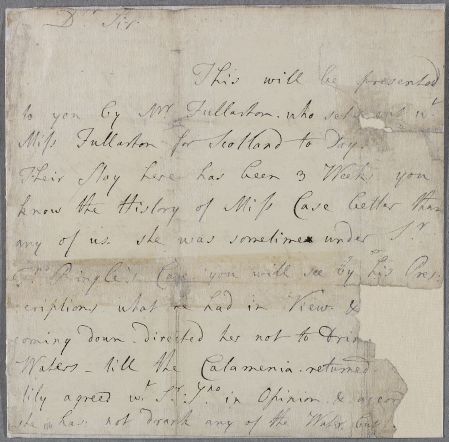 Dr Sir.
This will be presented
to you by Mr Fullarton. who sets out wt
Miss Fullarton for Scotland to Day.
Their Stay here has been 3 Weeks you
know the History of Miss Case better than
any of us. she was sometime under Sr
Jno Pringle's Care you will see by his Pres-
criptions what he had in View. &
coming down directed her not to Drin
Waters - till the Catamenia returned
lily agreed wt Sr Jno in Opinion. & accor
she has not drank any of the Water but